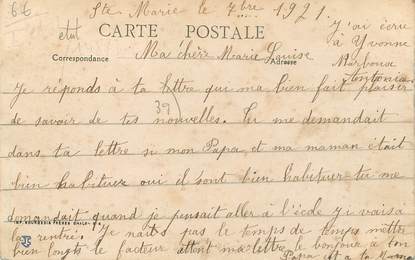 66
Ste Marie le 7bre 1921.
j'ai écrit
à Yvonne
Marboux
Antonia
CARTE POSTALE
Correspondance
Adresse
Ma chère Marie Louise
Je réponds à ta lettre qui ma bien fait plaisir
de savoir de tes nouvelles. Tu me demandait
39
dans ta lettre si mon Papa et ma maman était
bien habituer oui il sont bien habituer tu me
demandait quand je pensait aller à l'école j'y vais a
la rentré. Je n'aits pas le temps de temps mettre
bien longts le facteur attent ma lettre le bonjour a ton
Papa et a ta Mama
IMP. BOURGEOIS FRERES, CHALON